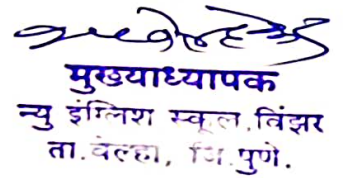 मुख्याध्यापक
न्यु इंग्लिश स्कूल, विंझर
ता. वेल्हा, जि. पुणे.